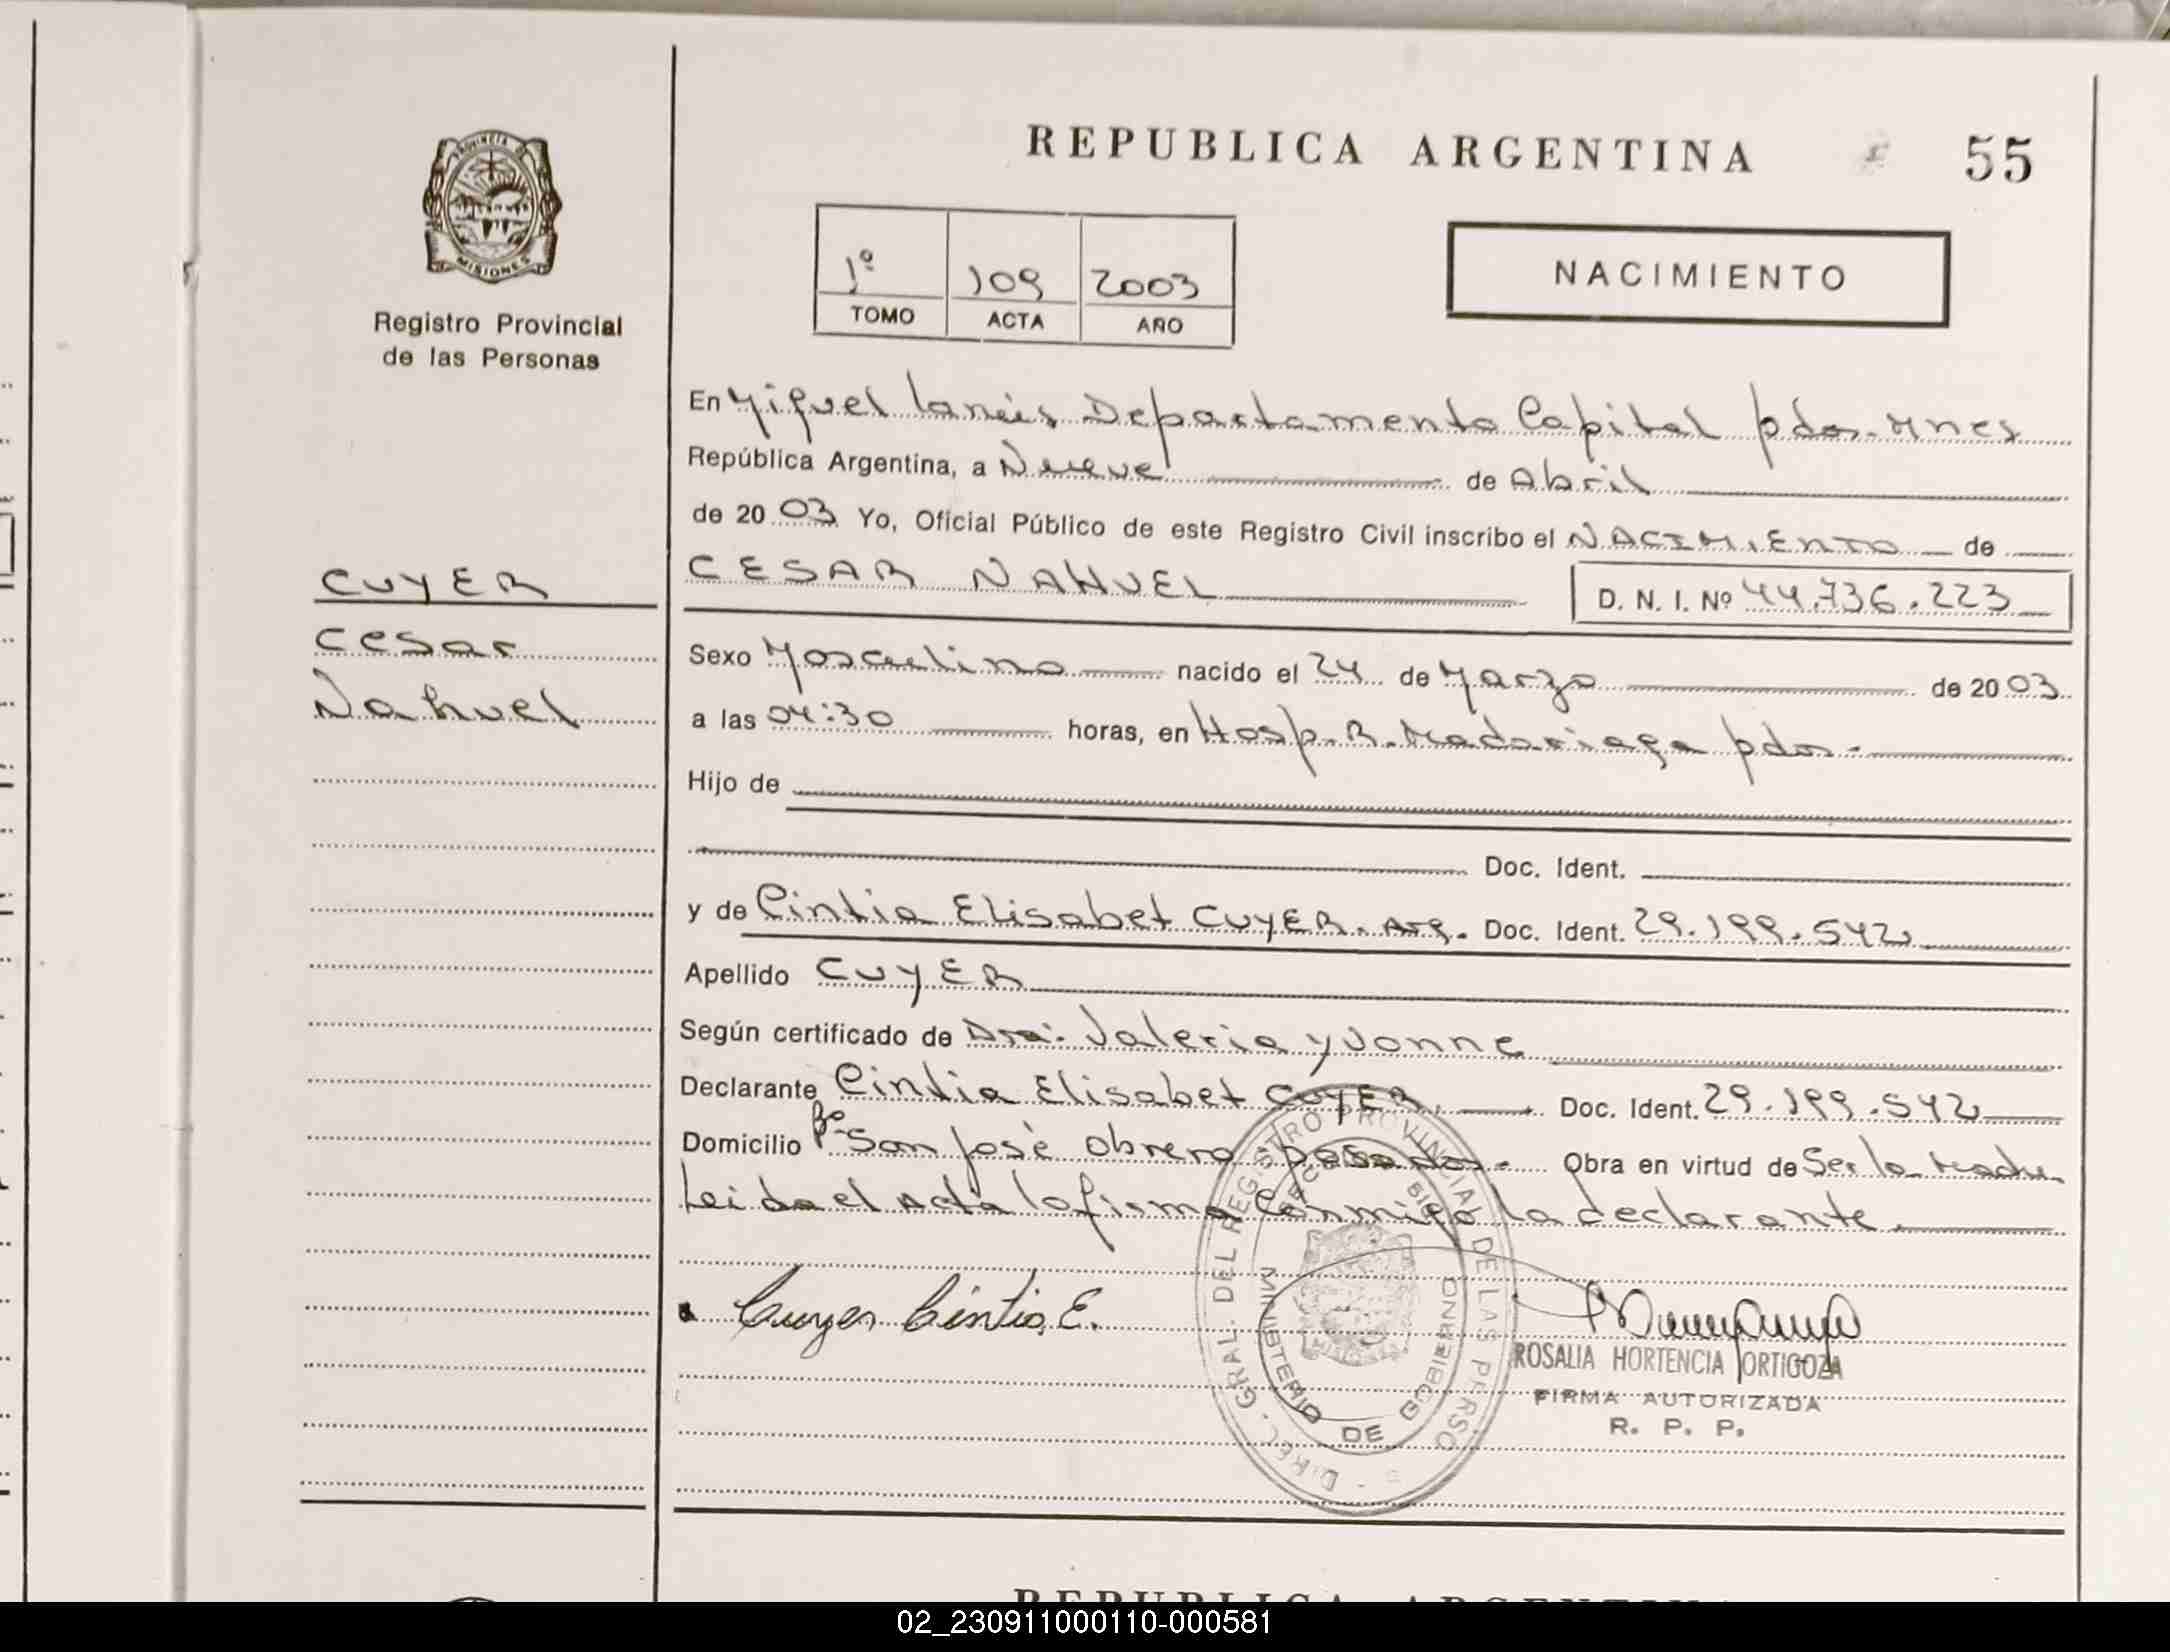 REPUBLICA ARGENTINA
55
PROVINCIA DE
MISIONES
Registro Provincial
de las Personas
1º 109 2003
TOMO ACTA AÑO
NACIMIENTO
En Miguel Lanús Departamento Capital pdas. Mnes
República Argentina, a Nueve de Abril
de 20 03 Yo, Oficial Público de este Registro Civil inscribo el NACIMIENTO de
CESAR NAHUEL D. N. I. Nº 44.736.223
CUYER
Cesar
Nahuel
Sexo Masculino nacido el 24 de Marzo de 20 03
a las 04:30 horas, en Hosp. R. Madariaga pdas.
Hijo de
Doc. Ident.
y de Cintia Elisabet CUYER. Arg. Doc. Ident. 29.199.542
Apellido CUYER
Según certificado de Dra. Valeria Yvonne
Declarante Cintia Elisabet CUYER. Doc. Ident. 29.199.542
Domicilio Bº San José Obrero posadas. Obra en virtud de Ser la Madre
Leida el Acta la firma Conmigo la declarante.
Cuyer Cintia E.
DIREC. GRAL. DEL REGISTRO PROVINCIAL DE LAS PERSO
MINISTERIO DE GOBIERNO
ROSALIA HORTENCIA ORTIGOZA
FIRMA AUTORIZADA
R. P. P.
REPUBLICA ARGENTINA
02_230911000110-000581